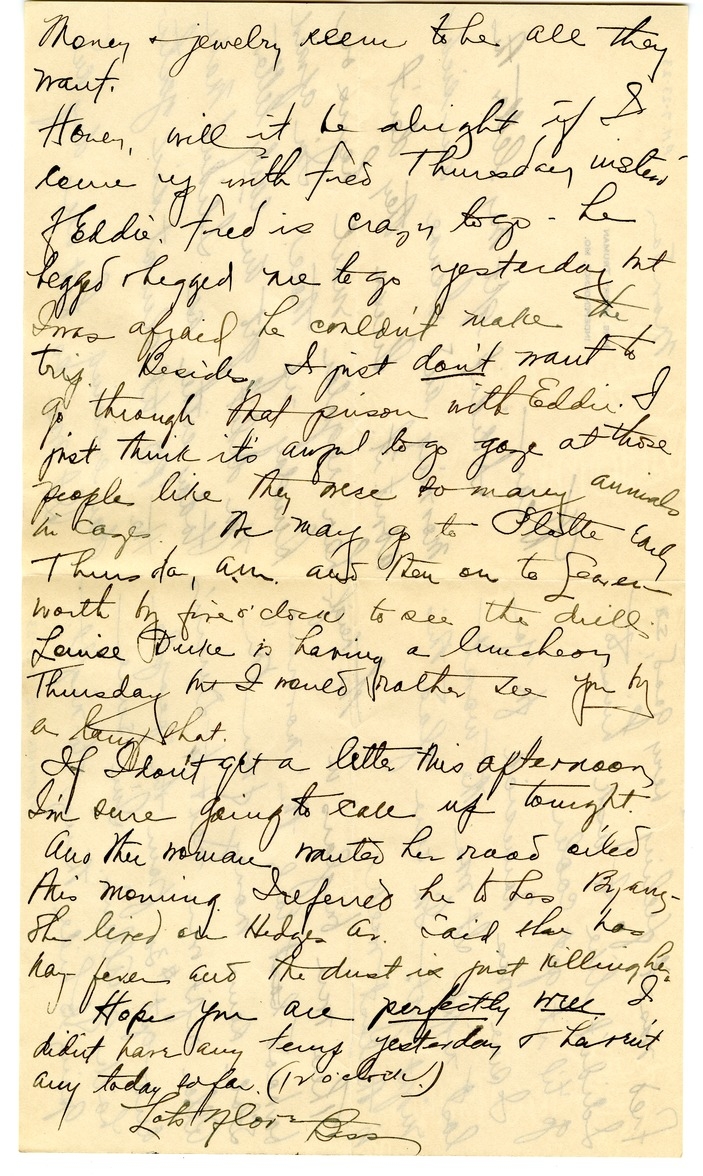 Money & jewelry seem to be all they
want.
Honey, will it be alright if I
come up with Fred Thursday instead
of Eddie. Fred is crazy to go - he
begged & begged me to go yesterday but
I was afraid he couldn't make the
trip. Besides, I just don't want to
go through that prison with Eddie. I
just think it's awful to go gaze at those
people like they were so many animals
in cages. We may go to Platte early
Thursday, a.m. and then on to Leaven-
worth by five o'clock to see the drill.
Louise Duke is having a luncheon
Thursday but I would rather see you by
a long shot.
If I don't get a letter this afternoon
I'm sure going to call up tonight.
Another woman wanted her road oiled
this morning. I referred he to Las Bryan,
She lived on Hedges Av. Said she has
hay-fever and the dust is just killing her.
Hope you are perfectly well I
didn't have any temp yesterday & haven't
any today so far. (12 o'clock.)
Lots of love Bess